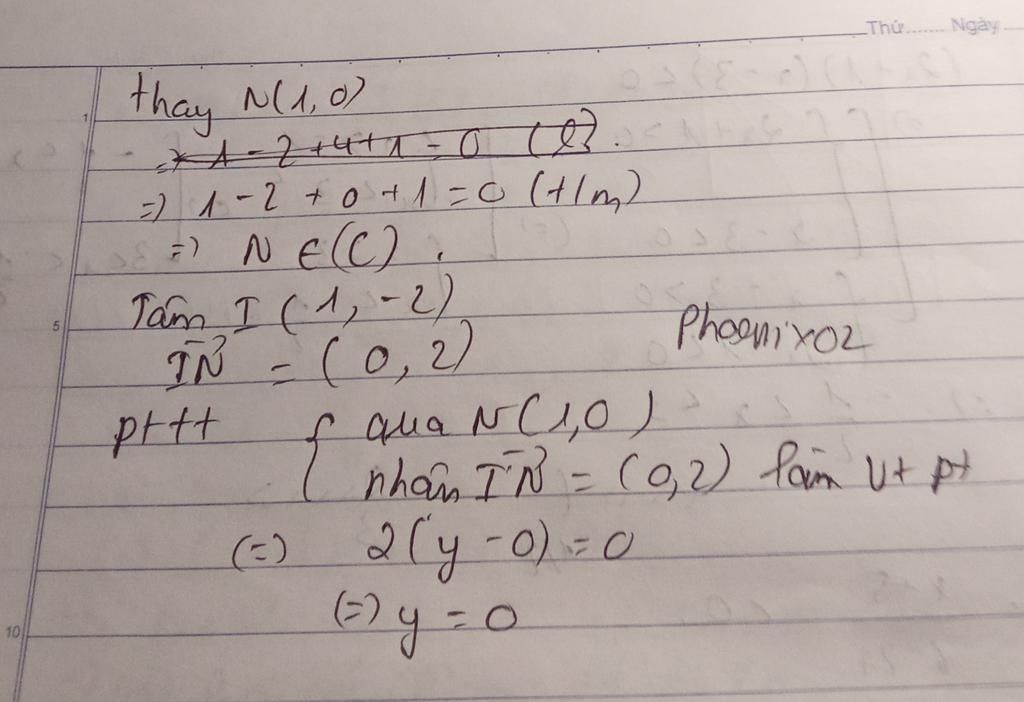 Thứ....... Ngày
thay N(1,0)
=> 1 - 2 + 4 + 1 = 0 (l).
=> 1 - 2 + 0 + 1 = 0 (t/m)
=> N ∈ (C).
Tâm I (1, -2)
Phoenix02
IN = (0, 2)
pttt { qua N(1,0)
nhân IN = (0,2) làm vt pt
(=) 2(y - 0) = 0
(=) y = 0
1
5
10